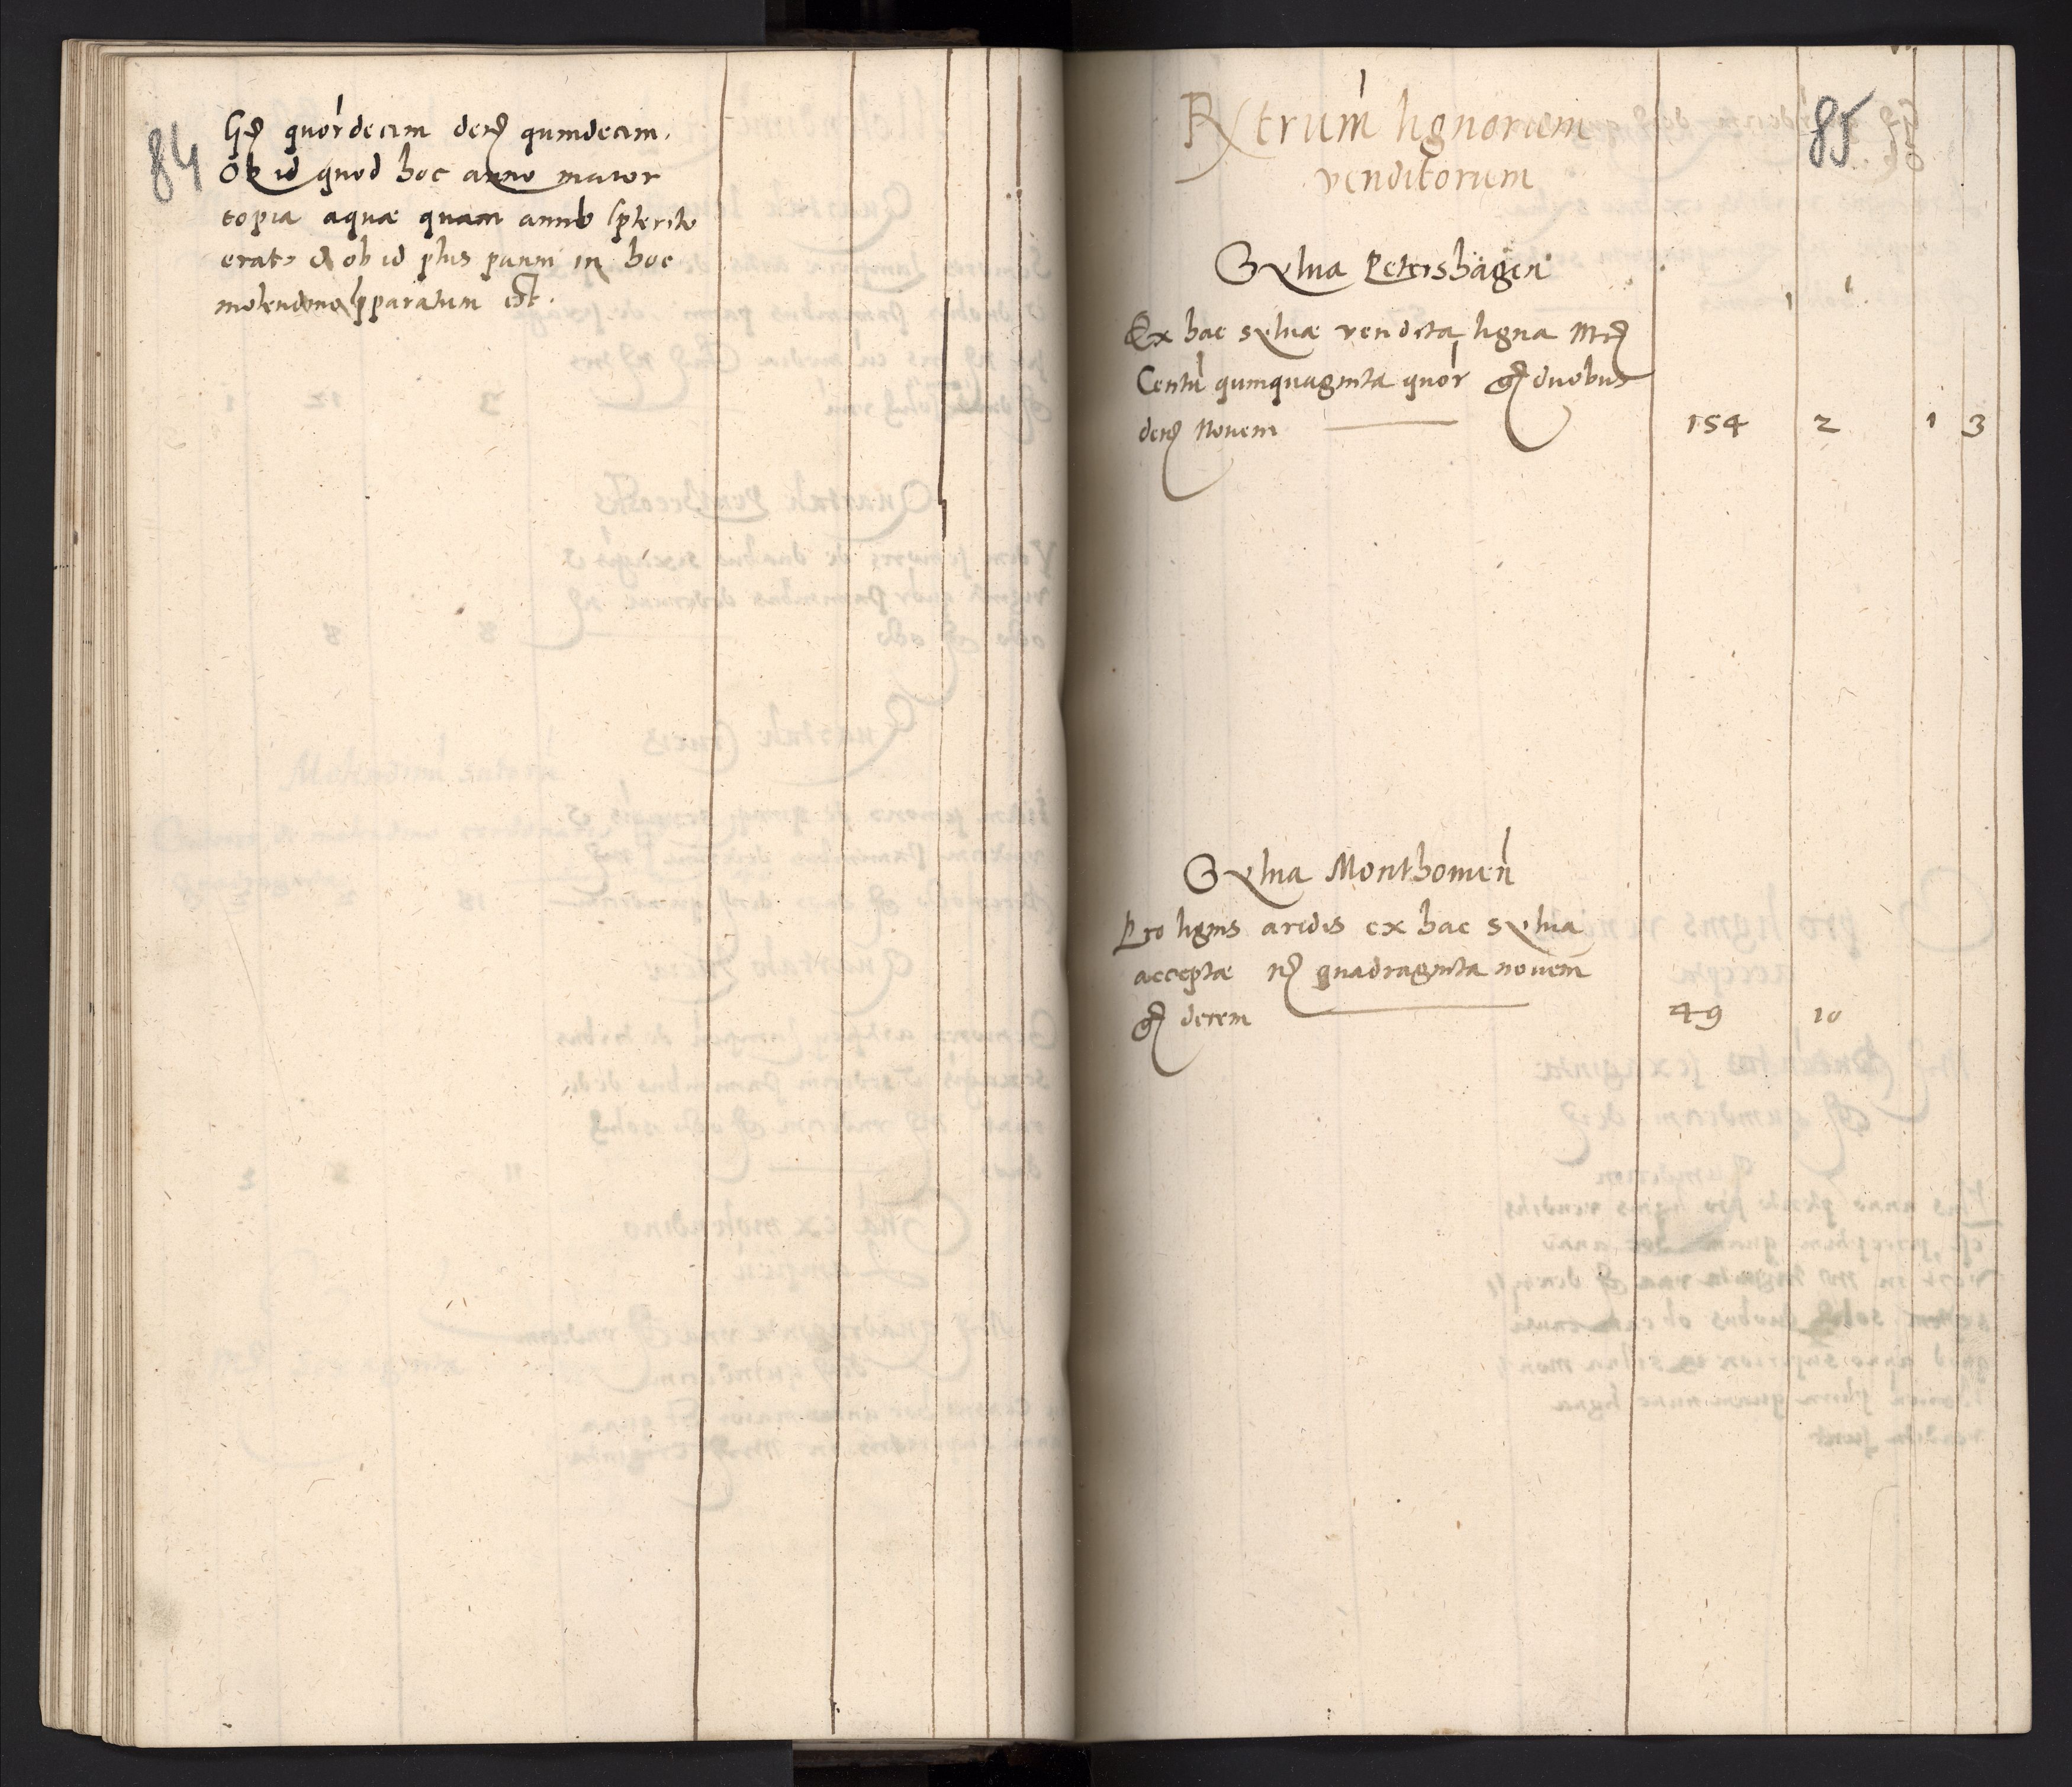 84
Gr quordecim den quindecim.
Ob id quod hoc anno maior
copia aquæ quam anno pterito
erat, & ob id plus panni in hoc
molendino pparatum est.
85
Rxtrum lignorum
venditorum
Sylva Petershagen
Ex hac sylvæ vendita ligna Mr
Centu quinquaginta quor gr duobus
den Novem 154 2 1 3
Sylva Monthowen
Pro lignis aridis ex hac sylva
acceptæ mr quadraginta novem
gr decem 49 10